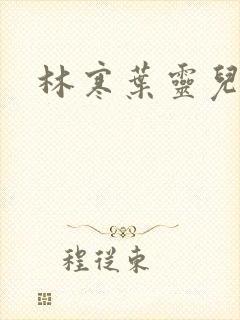 林寒葉靈兒
程從東